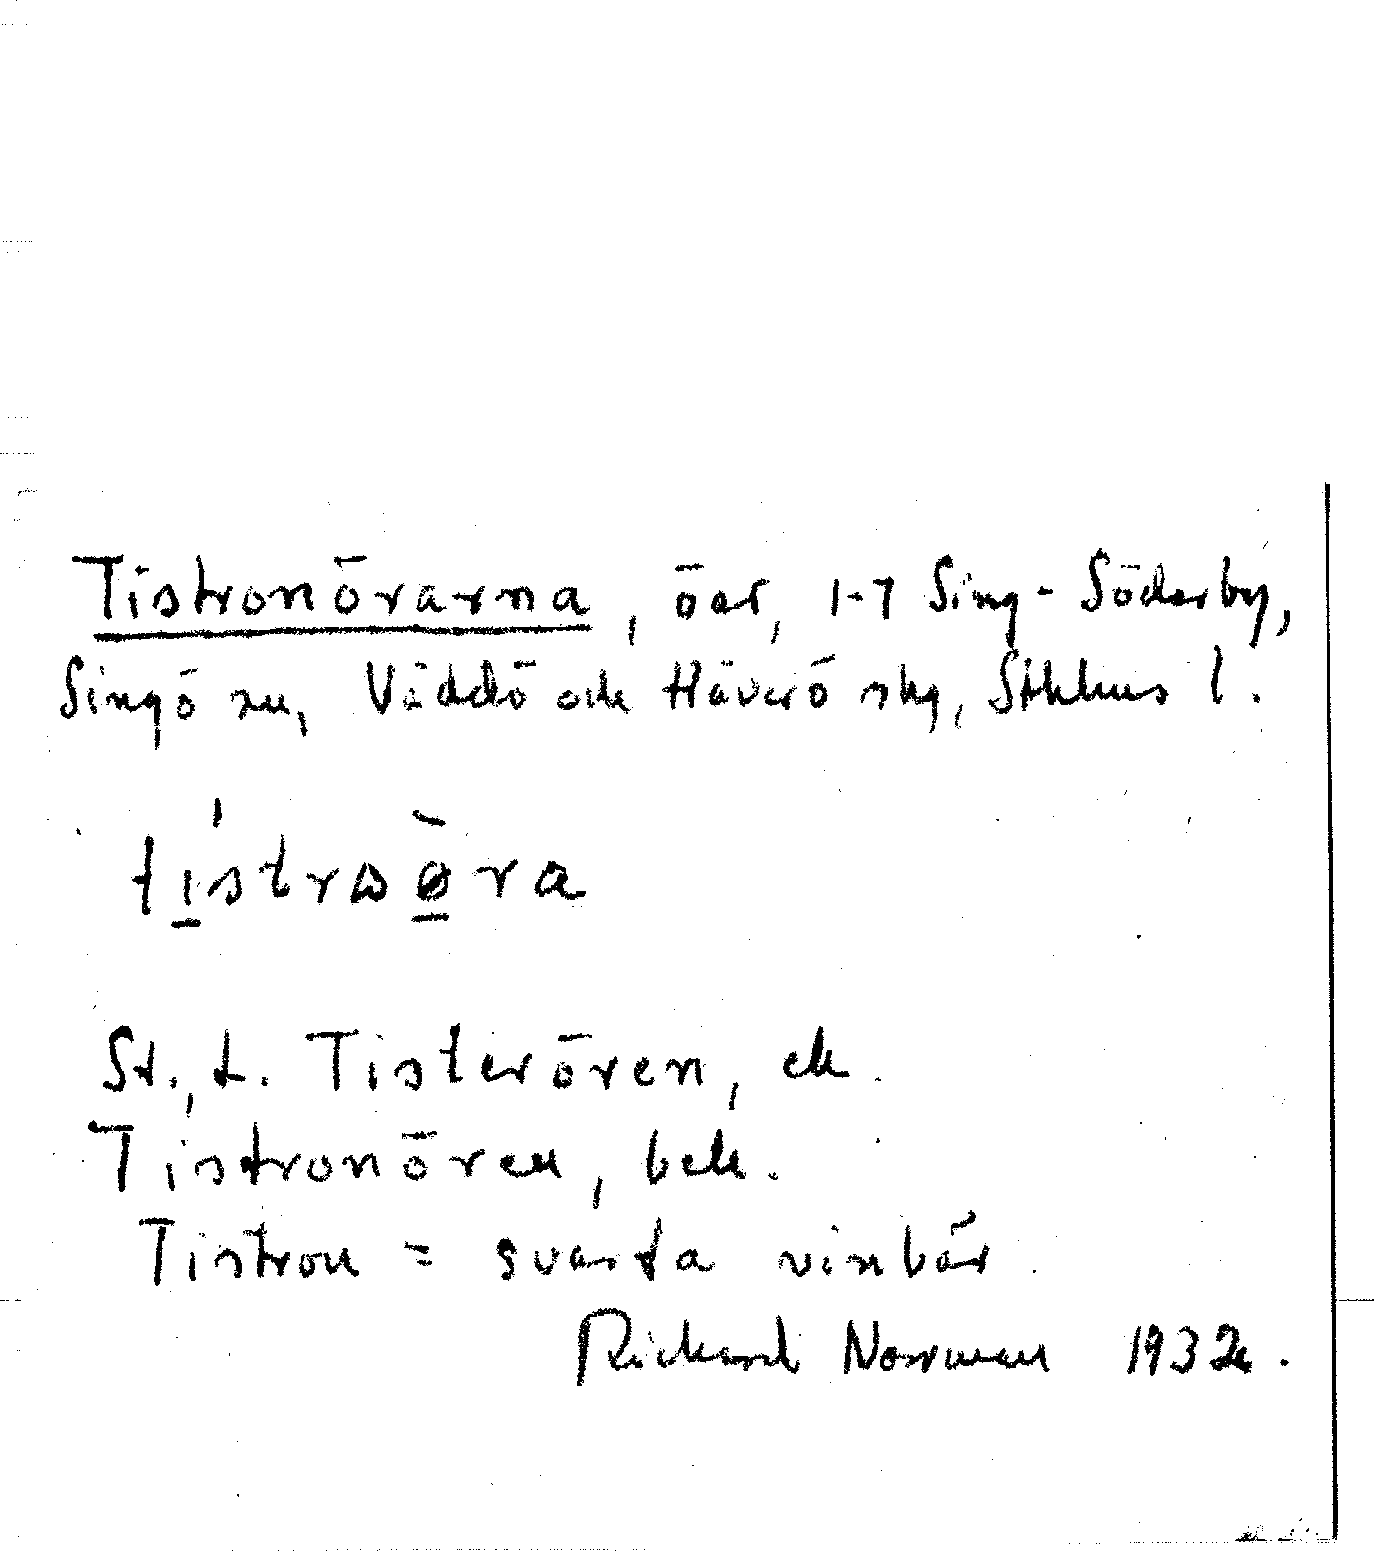 Tistronörarna, öar, 1-7 Sing-Söderby,
Singö sn, Väddö och Häverö skg, Sthlms l.
tistrωøra
St., L. Tisterören, ek.
Tistronören, bek.
Tistron = svarta vinbär.
Rickard Norrman 1932.